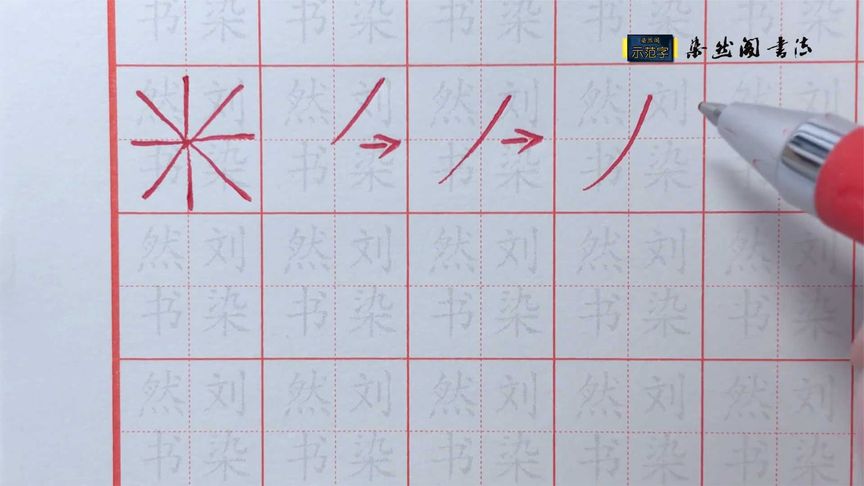 示范字 染然阁书法
书 染 书 染 书 染 书 染 书 染
然 刘 然 刘 然 刘 然 刘
书 染 书 染 书 染 书 染 书
然 刘 然 刘 然 刘 然 刘 然 刘
书 染 书 染 书 染 书 染 书 染
然 刘 然 刘 然 刘 然 刘 然 刘
书 染 书 染 书 染 书 染 书 染